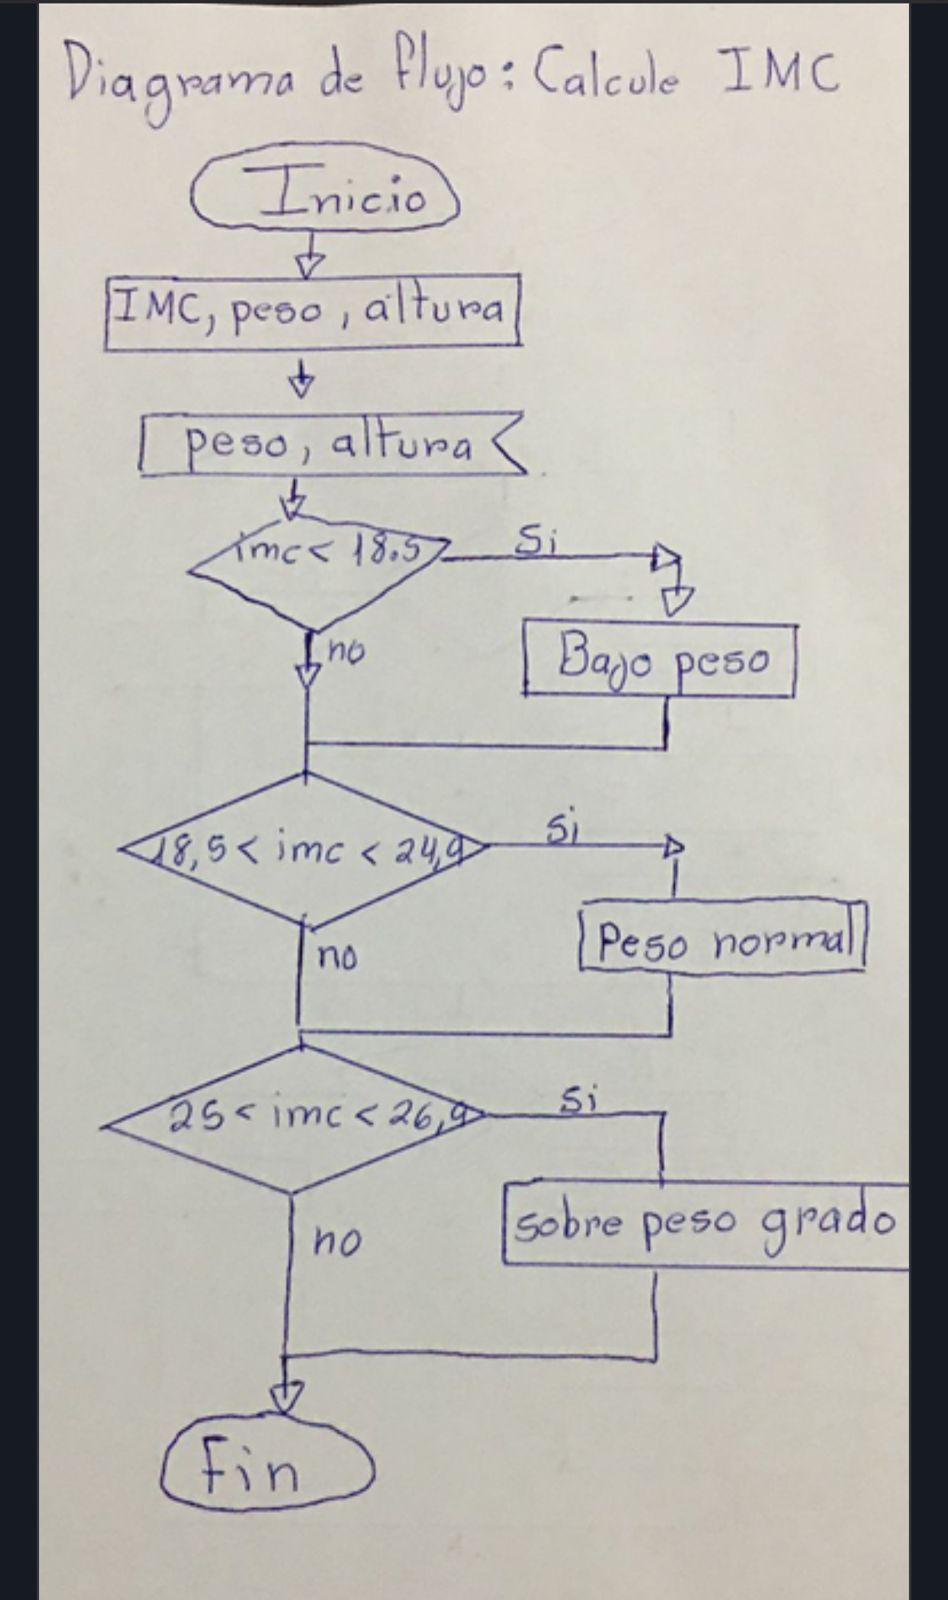 Diagrama de flujo: Calcule IMC
Inicio
IMC, peso, altura
peso, altura
imc < 18.5
Si
no
Bajo peso
18,5 < imc < 24,9
Si
Peso normal
no
25 < imc < 26,9
Si
sobre peso grado
no
Fin